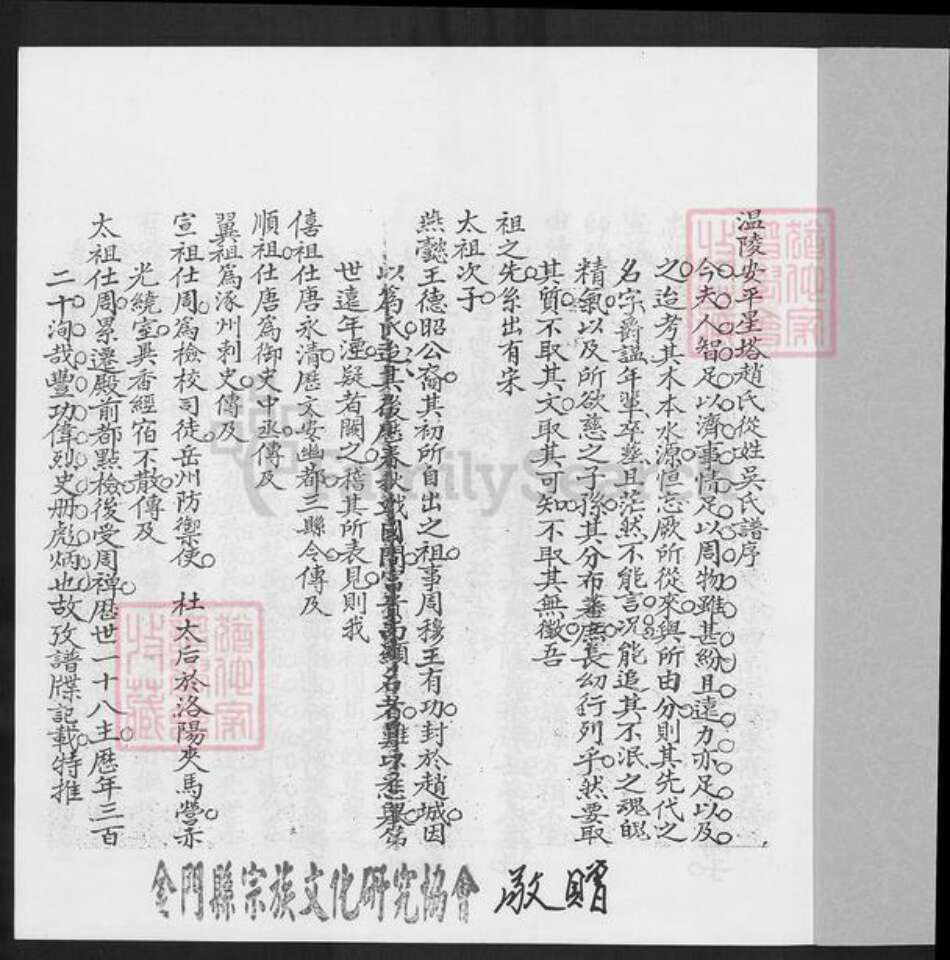 温陵安平星塔趙氏從姓吳氏譜序
今夫人智足以濟事情足以周物雖甚紛且遠力亦足以及
之迨考其木本水源恒忘厥所從來與所由分則其先代之
名字爵諡年輩卒塟且茫然不能言况能追其不泯之魂魄
精氣以及所欲慈之子孫其分布蕃廡長幼行列乎然要取
其質不取其文取其可知不取其無徵吾
祖之先系出有宋
太祖次子
燕懿王德昭公裔其初所自出之祖事周穆王有功封於趙城因
以為氏迨其後歷春秋戰國間富貴而顯名者難以悉舉第
世遠年湮疑者闕之稽其所表見則我
僖祖仕唐永清歷文安幽都三縣令傳及
順祖仕唐為御史中丞傳及
翼祖為涿州刺史傳及
宣祖仕周為檢校司徒岳州防禦使 杜太后於洛陽夾馬營赤
光繞室異香經宿不散傳及
太祖仕周累遷殿前都點檢後受周禅歷世一十八主歷年三百
二十洵哉豐功偉烈史册彪炳也故攷譜牒記載特推
金門縣宗族文化研究協會 敬贈
FamilySearch